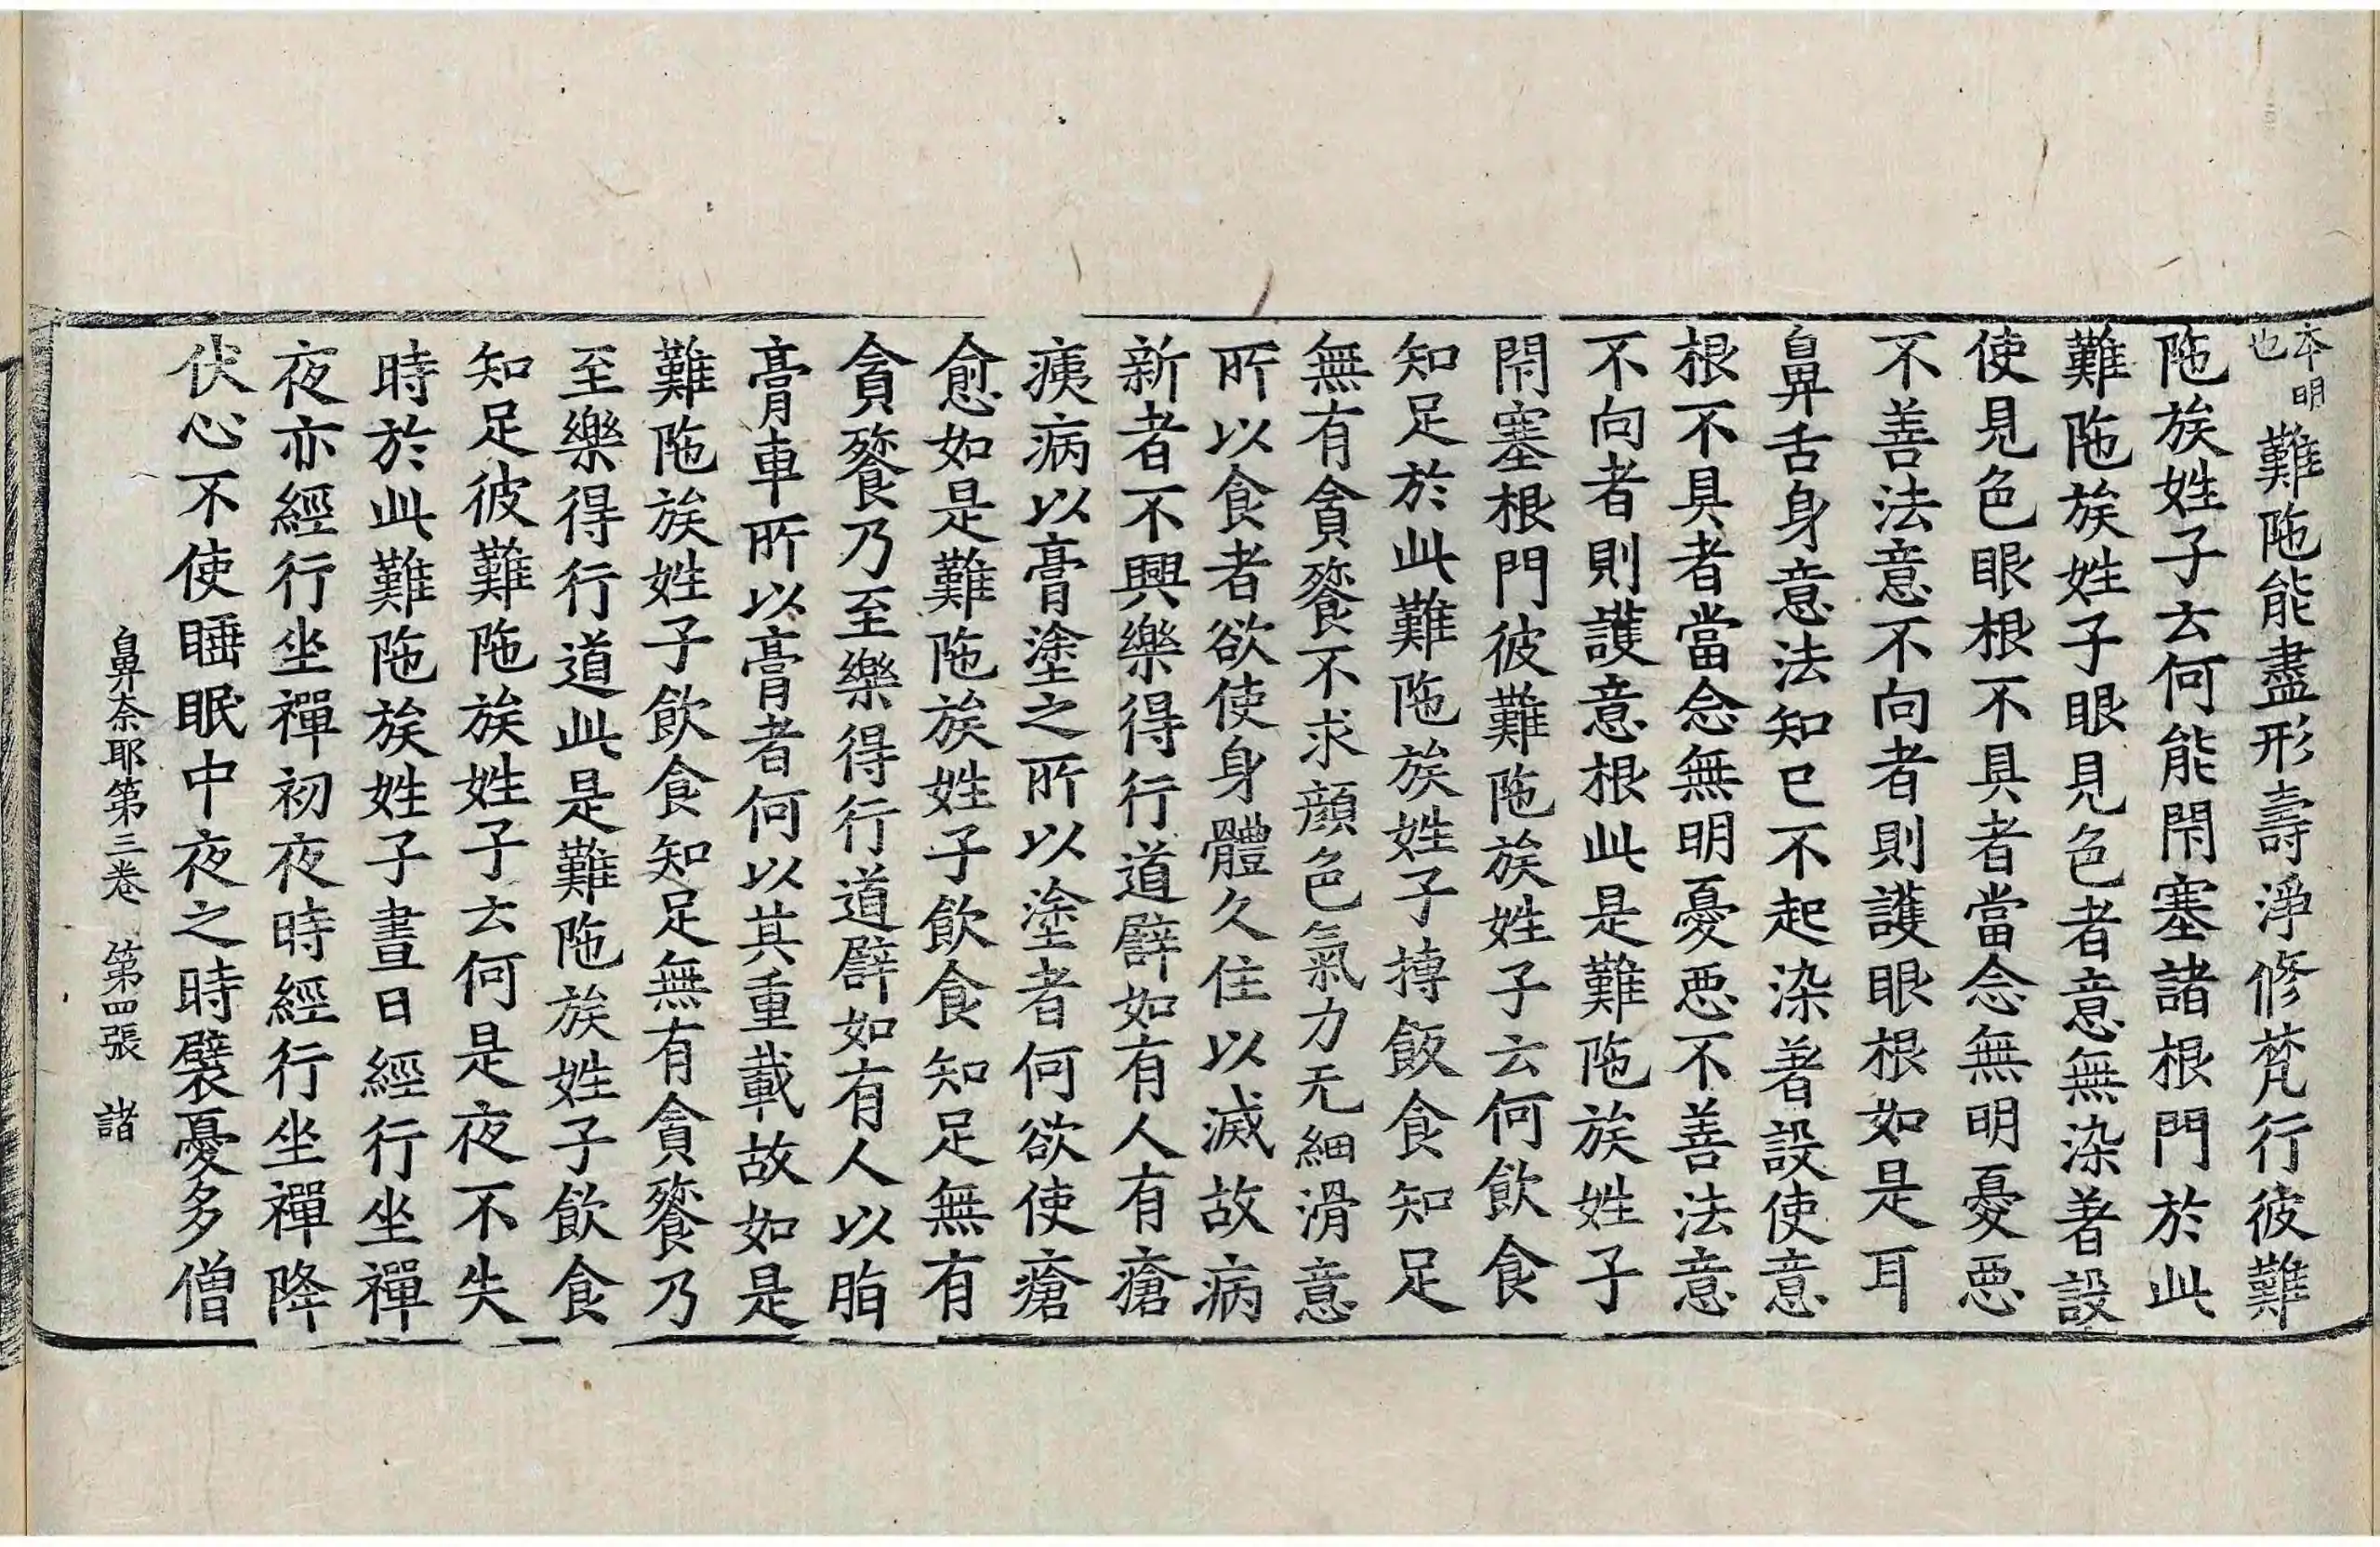 本明也難陁能盡形壽淨修梵行彼難
陁族姓子云何能閇塞諸根門於此
難陁族姓子眼見色者意無染著設
使見色眼根不具者當念無明憂惡
不善法意不向者則護眼根如是耳
鼻舌身意法知已不起染著設使意
根不具者當念無明憂惡不善法意
不向者則護意根此是難陁族姓子
閇塞根門彼難陁族姓子云何飲食
知足於此難陁族姓子摶飯食知足
無有貪餮不求顔色氣力无細滑意
所以食者欲使身體久住以滅故病
新者不興樂得行道譬如有人有瘡
痍病以膏塗之所以塗者何欲使瘡
愈如是難陁族姓子飲食知足無有
貪餮乃至樂得行道譬如有人以脂
膏車所以膏者何以其重載故如是
難陁族姓子飲食知足無有貪餮乃
至樂得行道此是難陁族姓子飲食
知足彼難陁族姓子云何是夜不失
時於此難陁族姓子晝日經行坐禪
夜亦經行坐禪初夜時經行坐禪降
伏心不使睡眠中夜之時襞憂多僧
鼻奈耶第三卷 第四張 諸